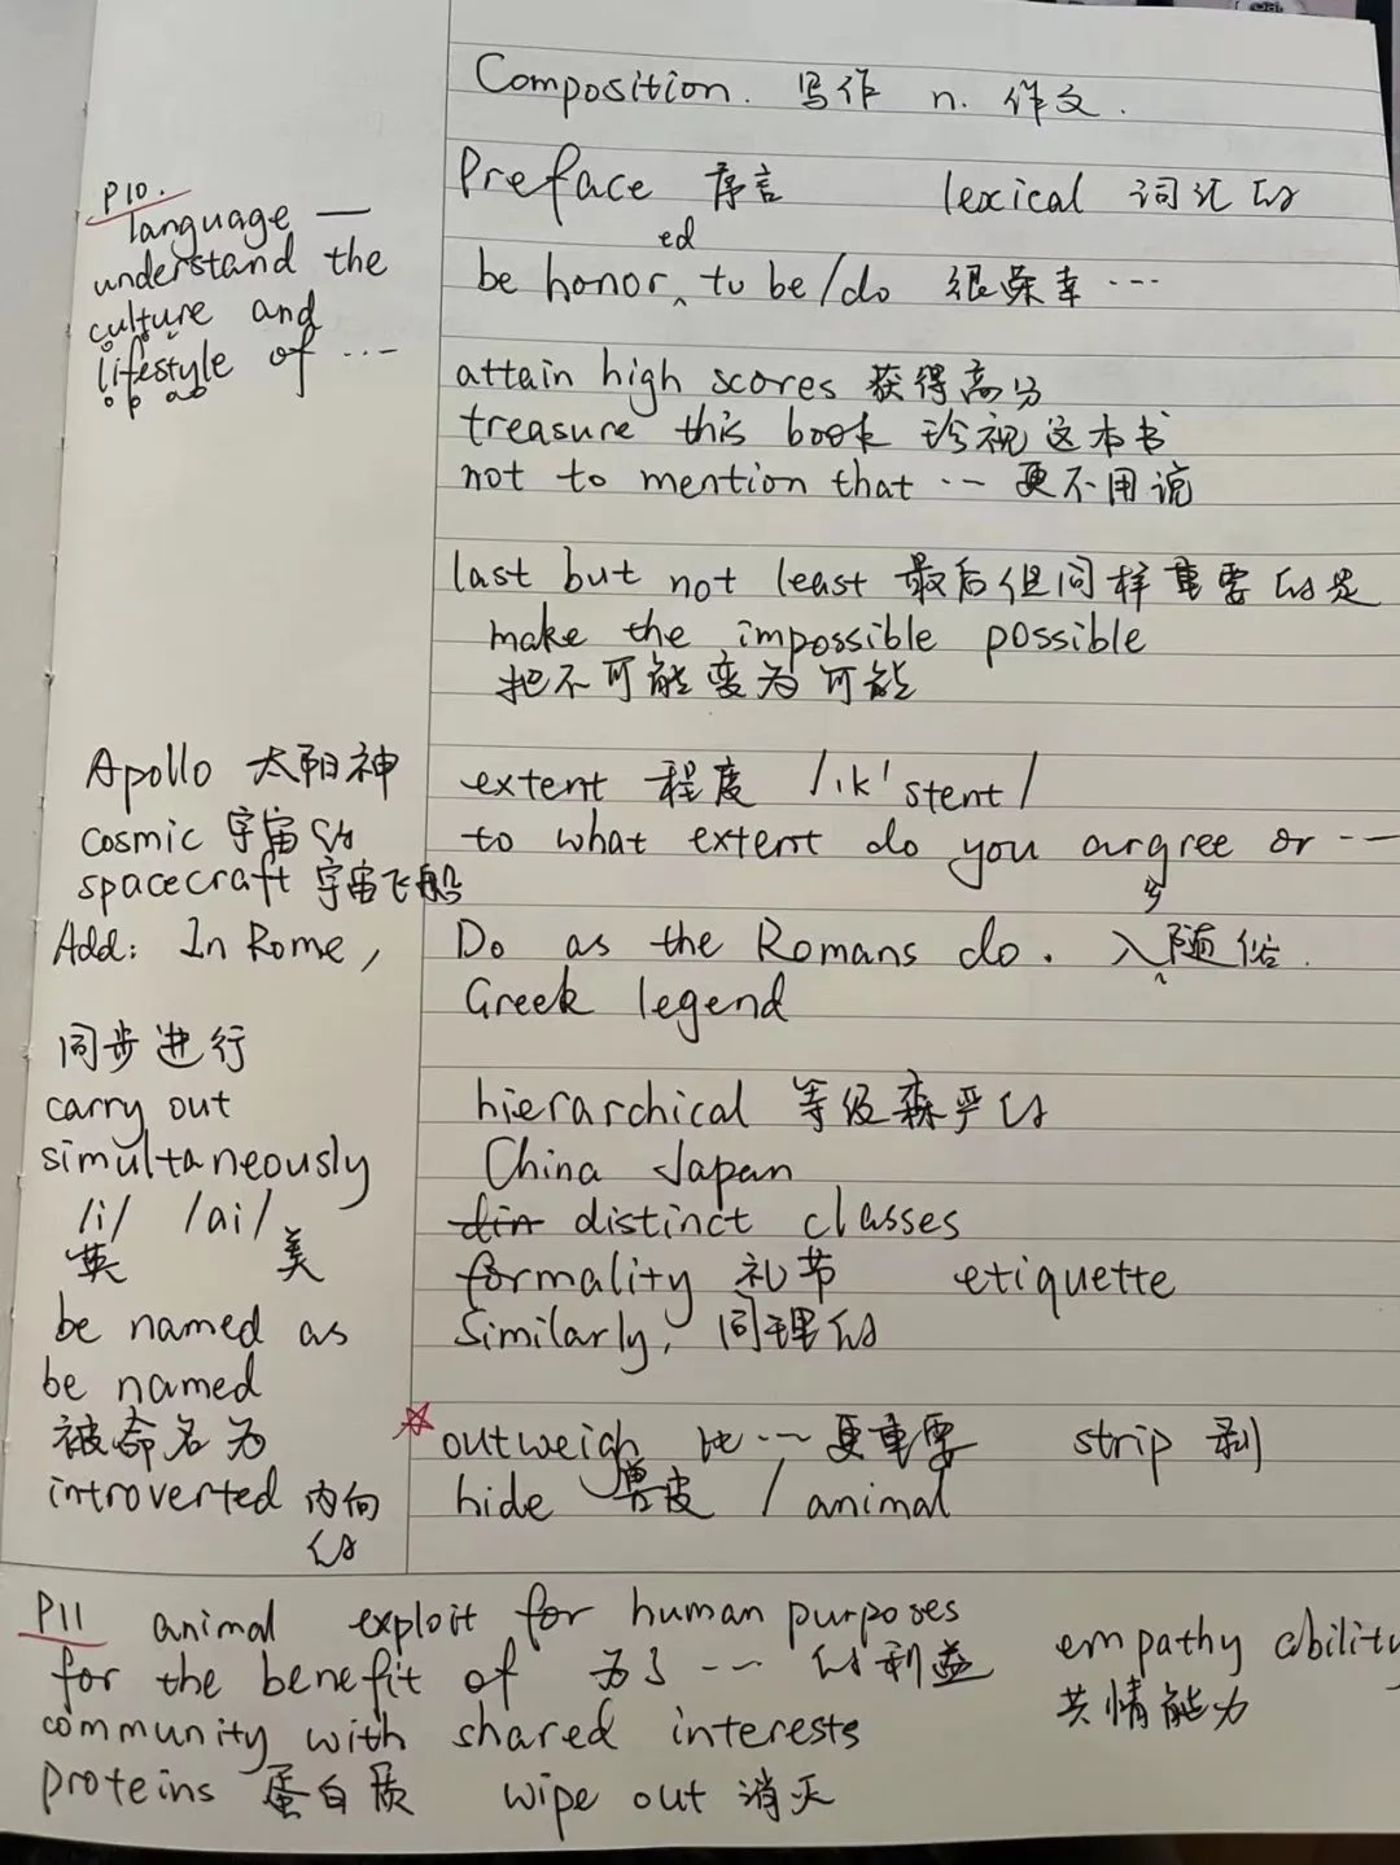 Composition. 写作 n. 作文.
Preface 序言 lexical 词汇的
ed
be honor^ to be/do 很荣幸 ...
attain high scores 获得高分
treasure this book 珍视这本书
not to mention that ... 更不用说
last but not least 最后但同样重要的是
make the impossible possible
把不可能变为可能
extent 程度 /ik'stent/
to what extent do you argree or ...
乡
Do as the Romans do. 入^随俗.
Greek legend
hierarchical 等级森严的
China Japan
din distinct classes
formality 礼节 etiquette
Similarly, 同理的
outweigh 比...更重要 strip 剥
hide 兽皮 / animal
P10.
language —
understand the
culture and
lifestyle of ...
Apollo 太阳神
cosmic 宇宙的
spacecraft 宇宙飞船
Add: In Rome,
同步进行
carry out
simultaneously
/i/ /ai/
英 美
be named as
be named
被命名为
introverted 内向
的
P11 animal exploit for human purposes
for the benefit of 为了...的利益
community with shared interests
proteins 蛋白质 wipe out 消灭
empathy ability
共情能力